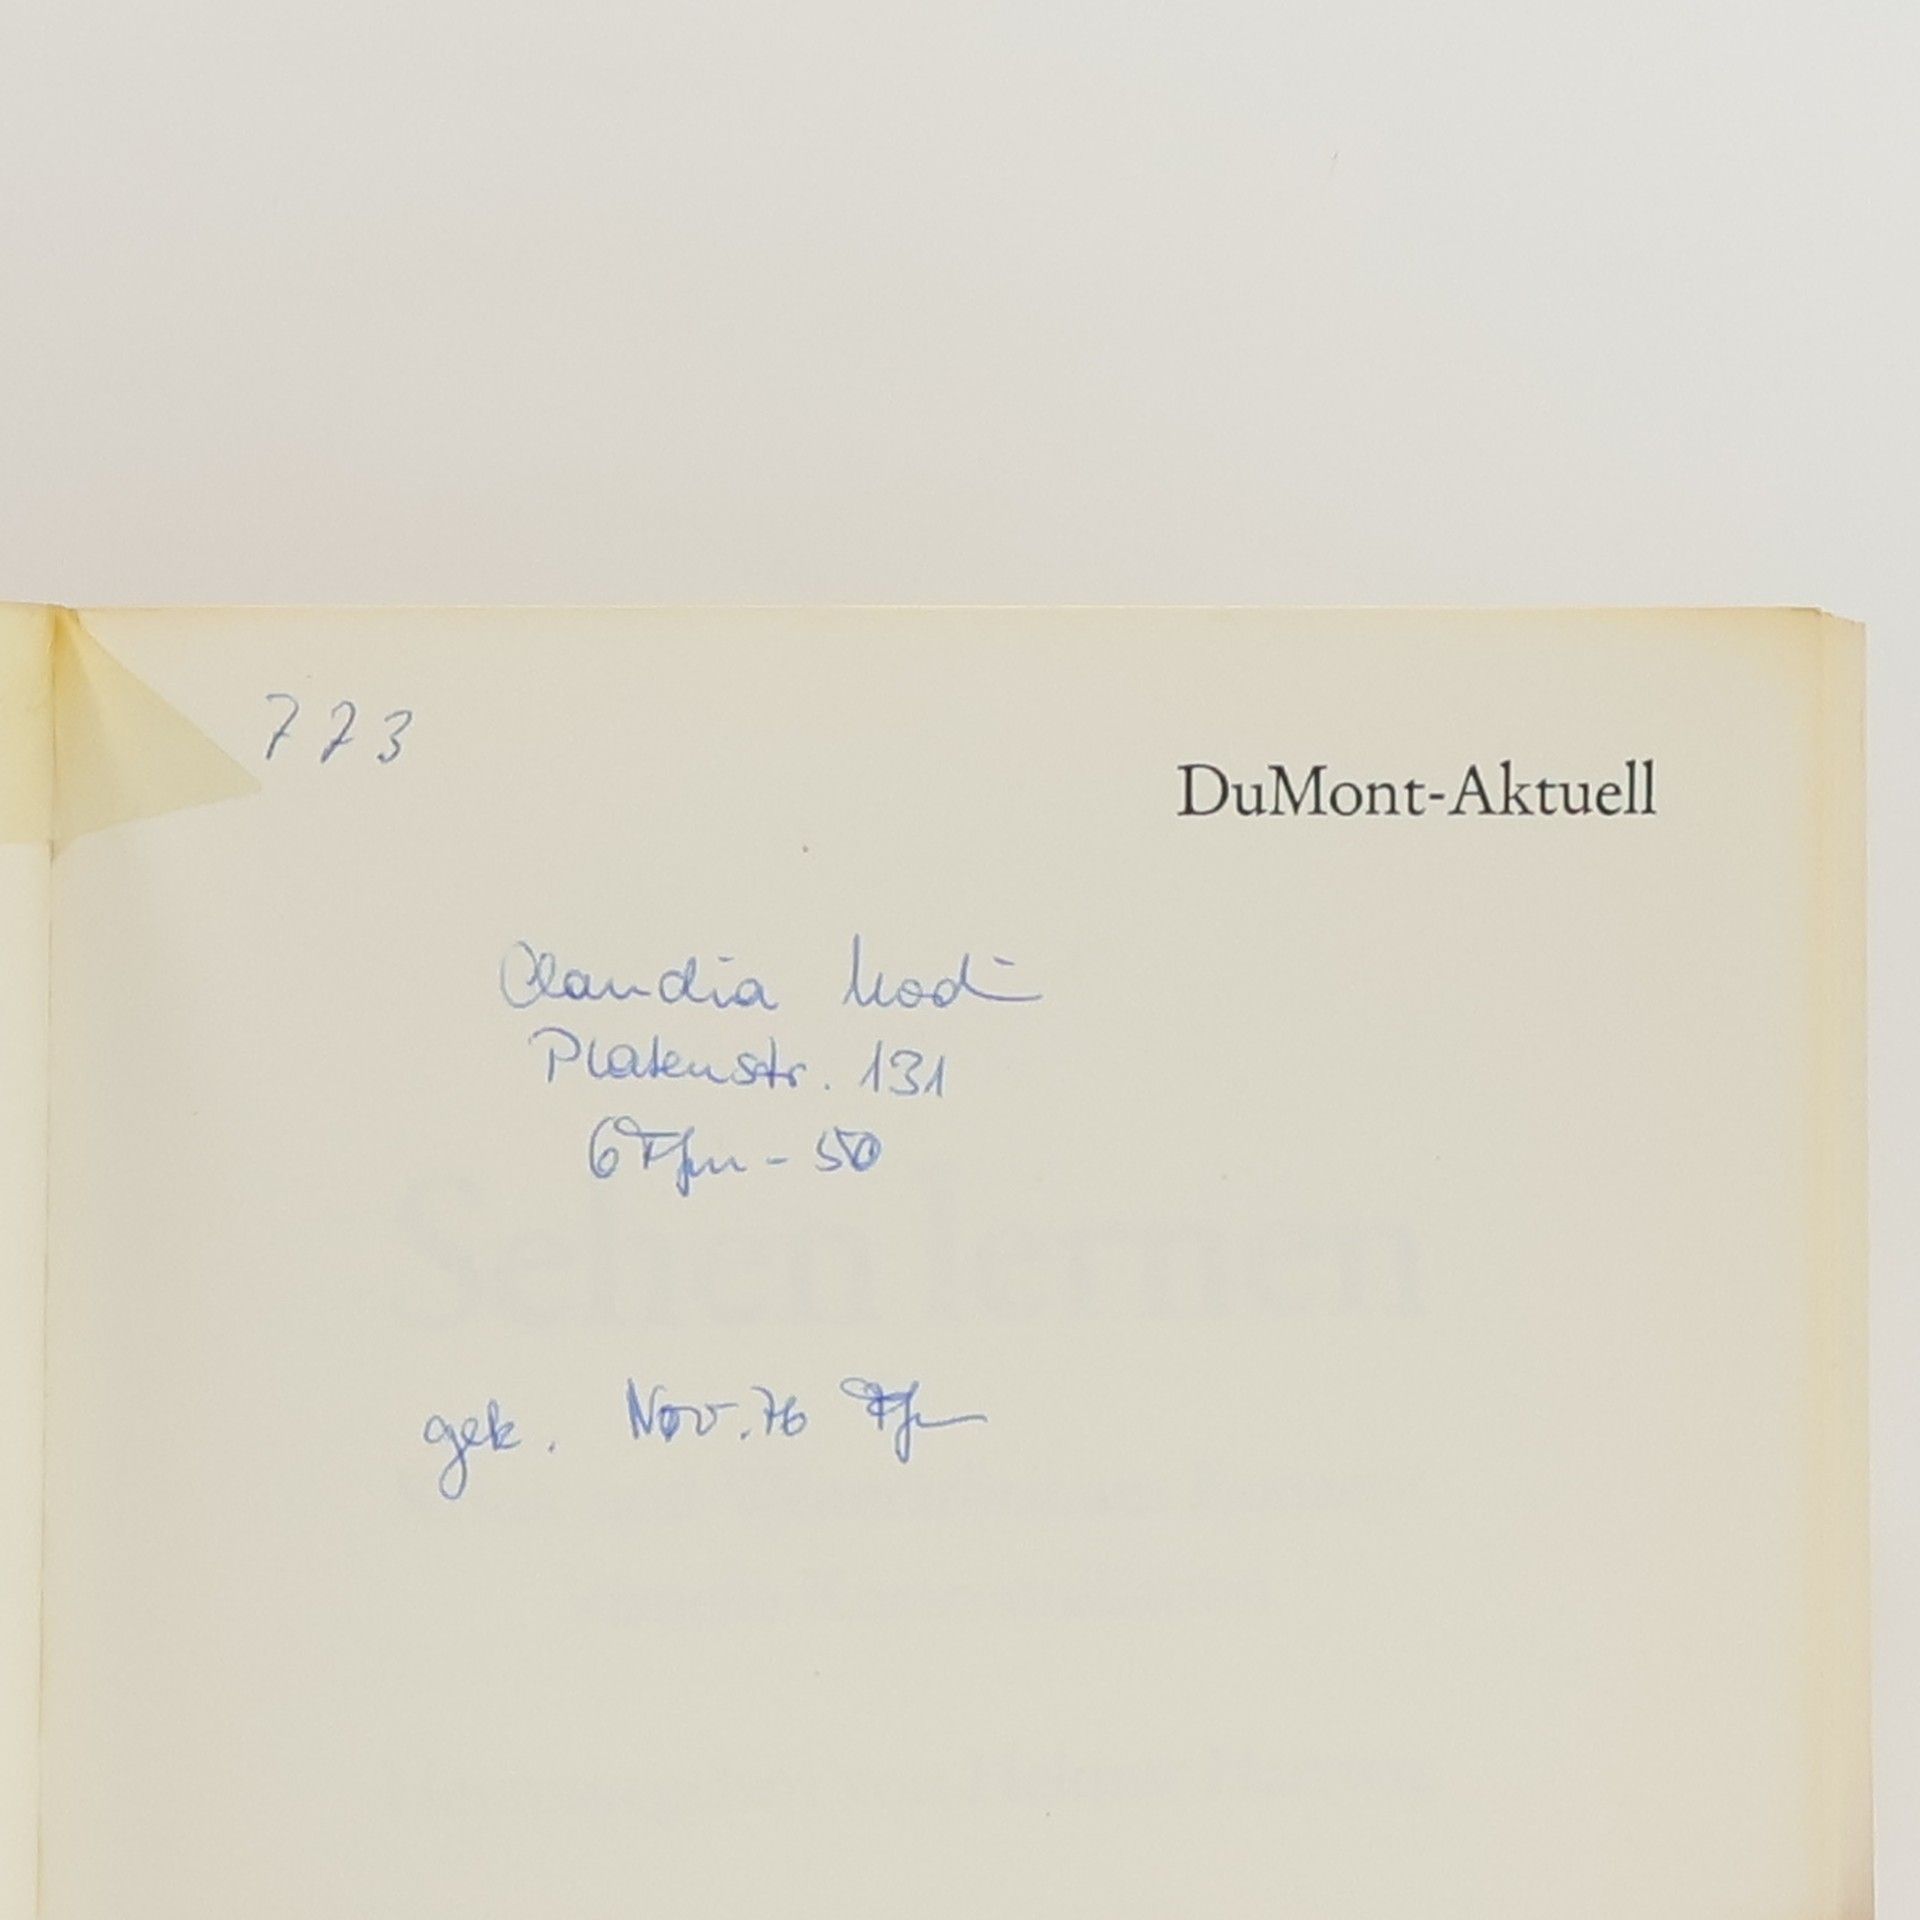 773
DuMont-Aktuell
Claudia
Platenstr. 131
6 Ffm - 50
Sehen lernen
gek. Nov. 76 Ffm